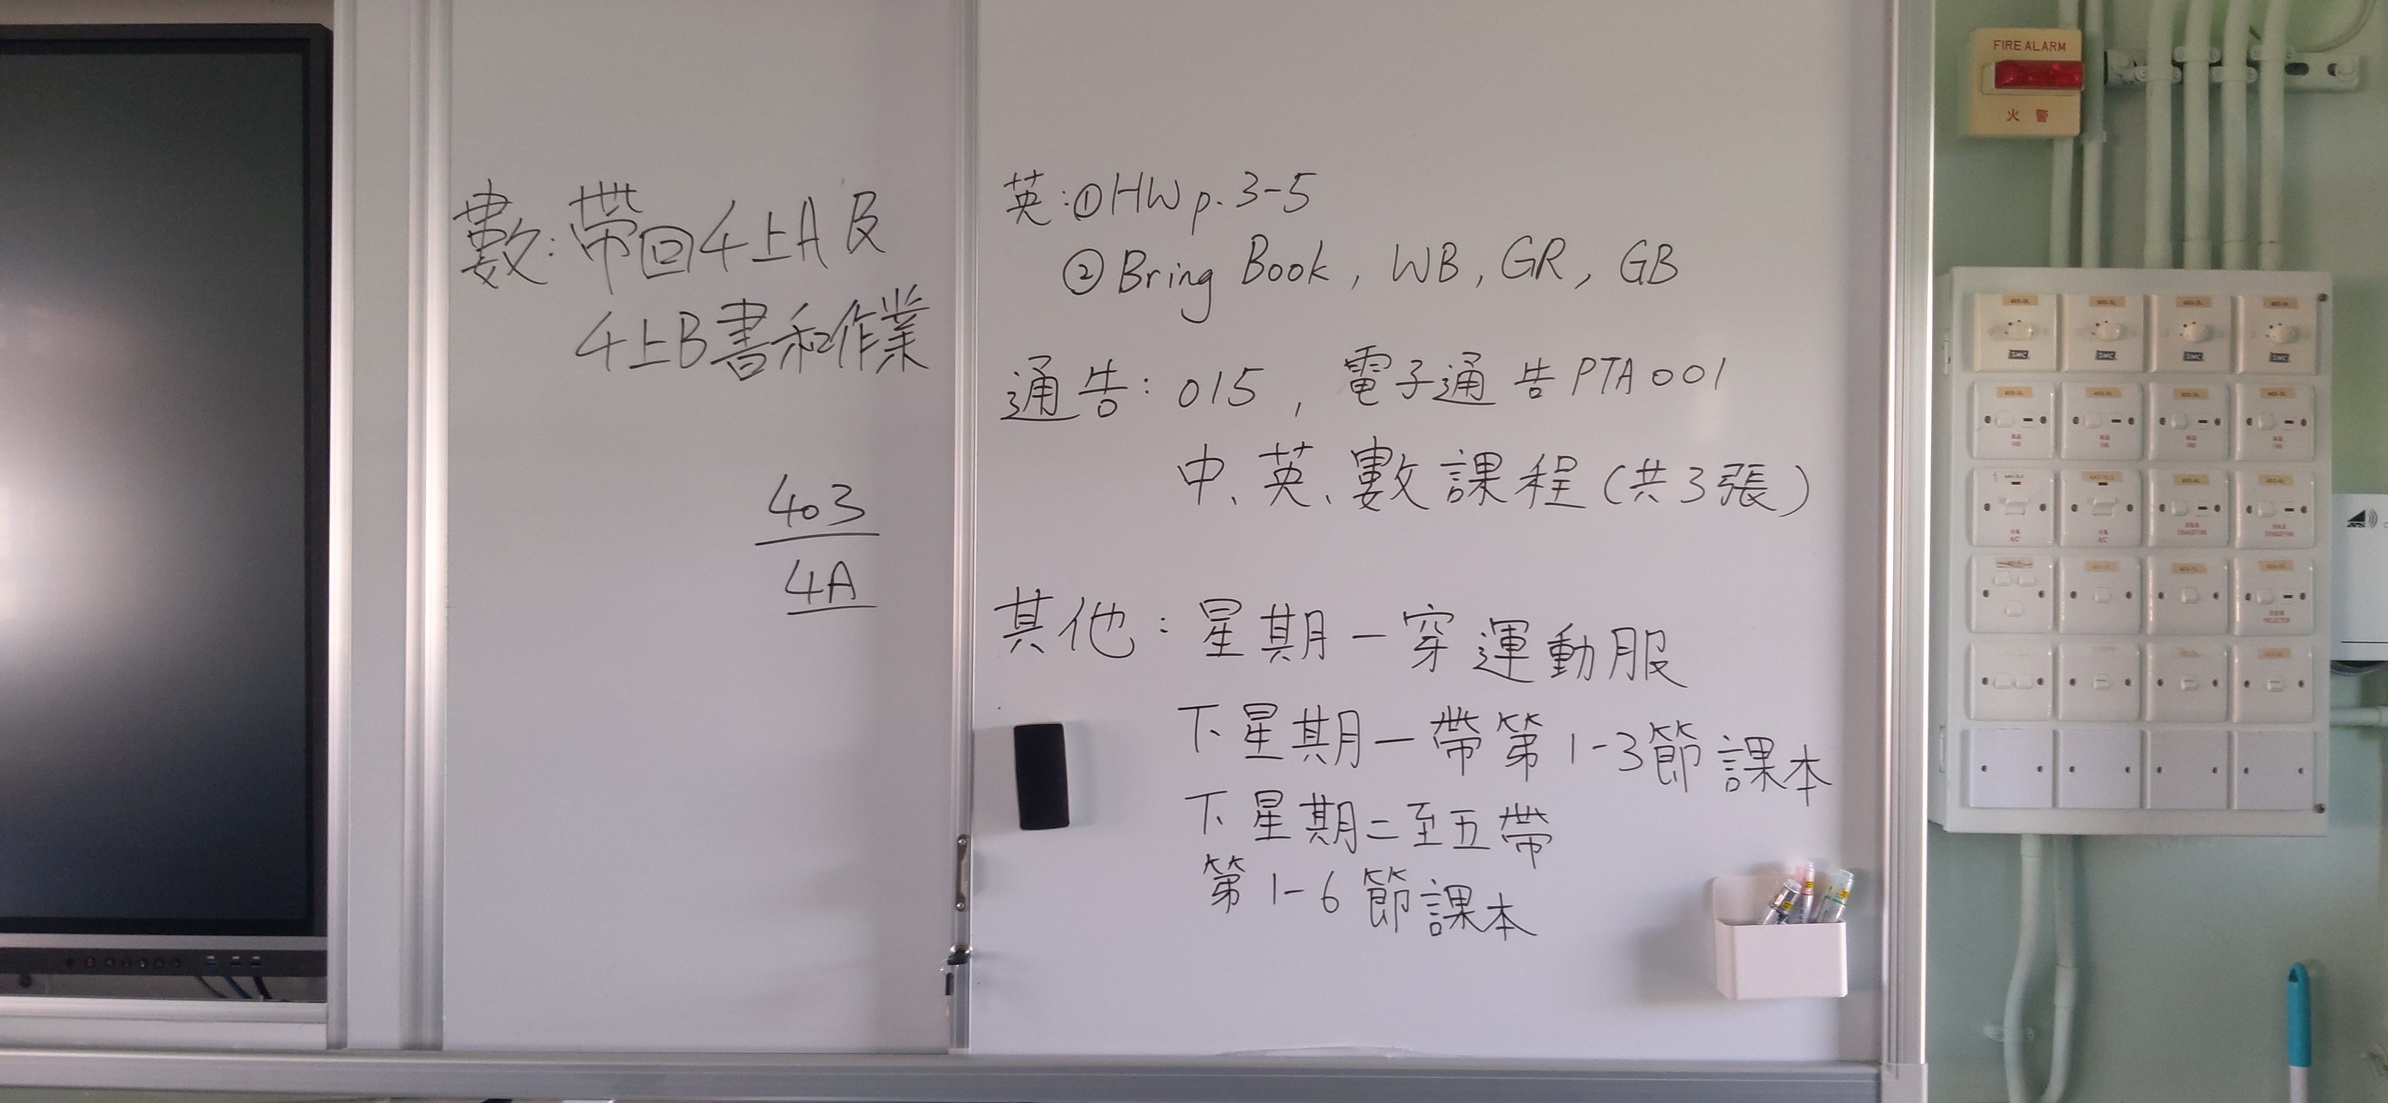 數：帶回4上A及
4上B書和作業
403
4A
英：①HW p.3-5
②Bring Book, WB, GR, GB
通告：015，電子通告PTA001
中、英、數課程(共3張)
其他：星期一穿運動服
下星期一帶第1-3節課本
下星期二至五帶
第1-6節課本
FIRE ALARM
火警
SMC
SMC
SMC
SMC